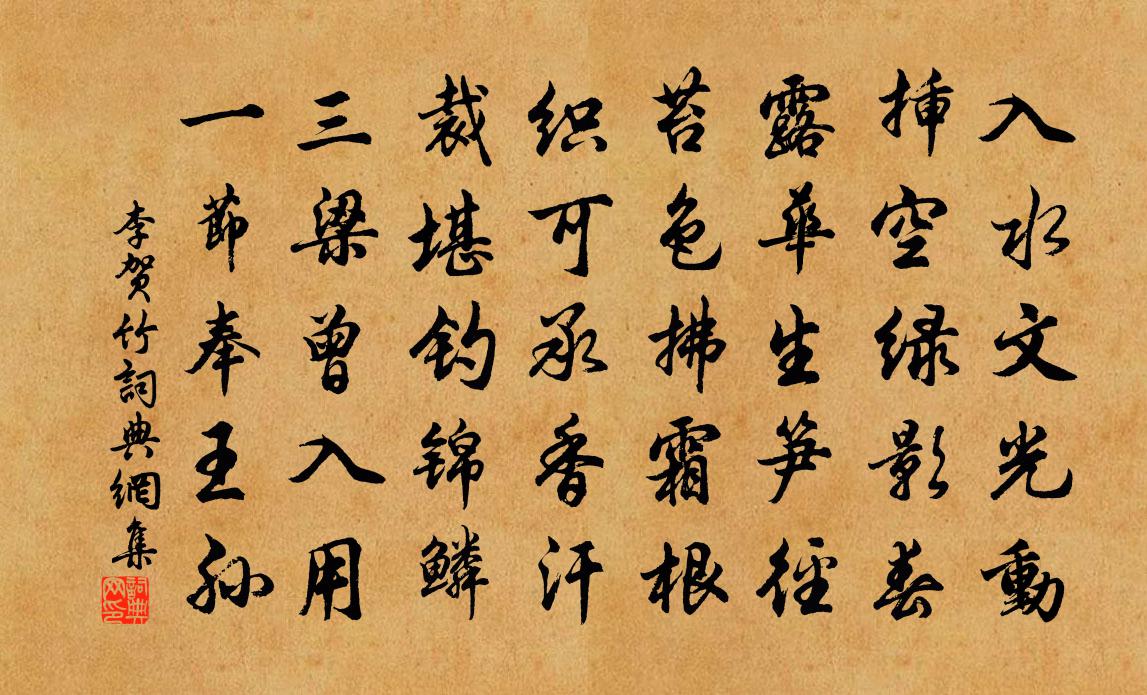 入水文光動
挿空绿影春
露華生笋徑
苔色拂霜根
织可承香汗
裁堪钓锦鳞
三梁曾入用
一節奉王孙
李贺竹詞典網集
詞典
网印